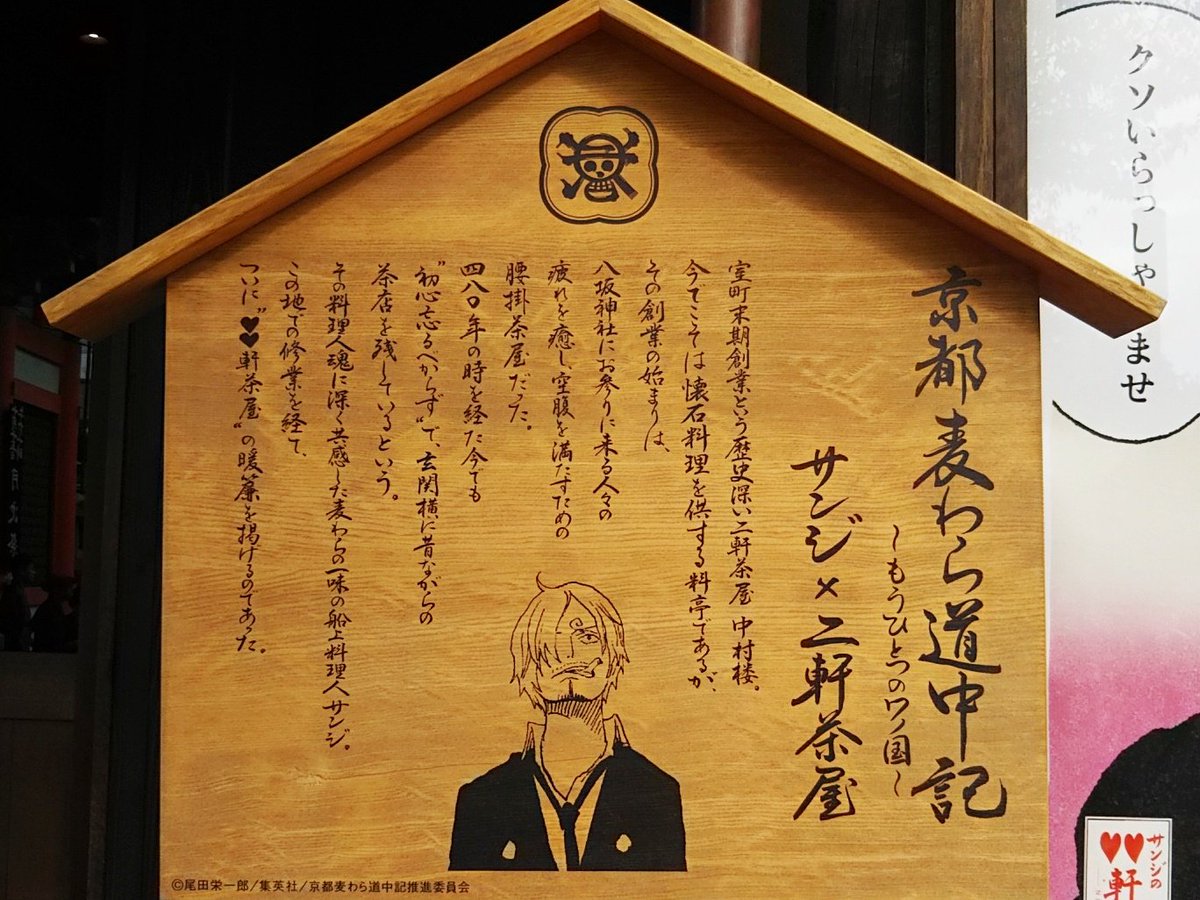 京都麦わら道中記
～もうひとつのワノ国～
サンジ×二軒茶屋
室町末期創業という歴史深い二軒茶屋 中村楼。
今でこそは懐石料理を供する料亭であるが、
その創業の始まりは、
八坂神社にお参りに来る人々の
疲れを癒し、空腹を満たすための
腰掛茶屋だった。
四八〇年の時を経た今でも
“初心忘るべからず”で、玄関横に昔ながらの
茶店を残しているという。
その料理人魂に深く共感した麦わらの一味の船上料理人サンジ。
この地での修業を経て、
ついに“♥♥軒茶屋”の暖簾を掲げるのであった。
©尾田栄一郎/集英社/京都麦わら道中記推進委員会
クソいらっしゃ
ませ
サンジの
♥♥軒